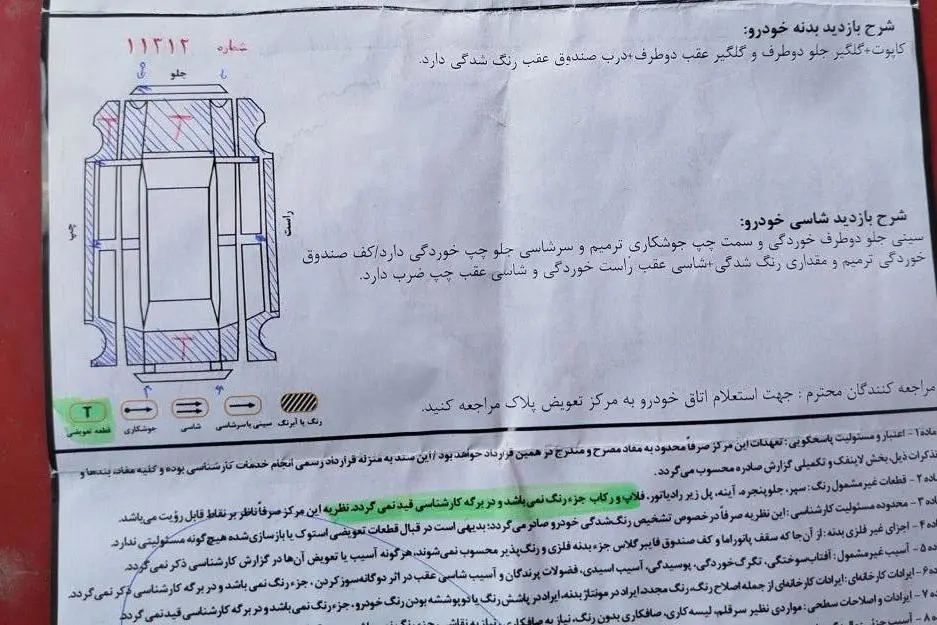 شرح بازدید بدنه خودرو:
کاپوت+گلگیر جلو دوطرف و گلگیر عقب دوطرف+درب صندوق عقب رنگ شدگی دارد.
شماره ۱۱۳۱۲
جلو
T
T
چپ
راست
T
شرح بازدید شاسی خودرو:
سینی جلو دوطرف خوردگی و سمت چپ جوشکاری ترمیم و سرشاسی جلو چپ خوردگی دارد/کف صندوق
خوردگی ترمیم و مقداری رنگ شدگی+شاسی عقب راست خوردگی و شاسی عقب چپ ضرب دارد.
رنگ یا آبرنگ
سینی یا سرشاسی
شاسی
جوشکاری
T
قطعه تعویضی
مراجعه کنندگان محترم : جهت استعلام اتاق خودرو به مرکز تعویض پلاک مراجعه کنید.
ماده ۱ - اعتبار و مسئولیت پاسخگویی: تعهدات این مرکز صرفاً محدود به مفاد مصرح و مندرج در همین قرارداد خواهد بود / این سند به منزله قرارداد رسمی انجام خدمات کارشناسی بوده و کلیه مفاد، بندها و
تذکرات ذیل، بخش لاینفک و تکمیلی گزارش صادره محسوب می‌گردد.
ماده ۲ - قطعات غیرمشمول رنگ: سپر، جلوپنجره، آینه، پل زیر رادیاتور، فلاپ و رکاب جزء رنگ نمی‌باشد و در برگه کارشناسی قید نمی گردد. نظریه این مرکز صرفاً ناظر بر نقاط قابل رؤیت می‌باشد.
ماده ۳ - محدوده مسئولیت کارشناسی: این نظریه صرفاً در خصوص تشخیص رنگ‌شدگی خودرو صادر می‌گردد؛ بدیهی است در قبال قطعات تعویضی استوک یا بازسازی‌شده هیچ‌گونه مسئولیتی ندارد.
ماده ۴ - اجزای غیر فلزی بدنه: از آن‌جا که سقف پانوراما و کف صندوق فایبرگلاس جزء بدنه فلزی و رنگ‌پذیر محسوب نمی‌شوند، هرگونه آسیب یا تعویض آن‌ها در گزارش کارشناسی ذکر نمی‌گردد.
ماده ۵ - آسیب غیرمشمول: آفتاب‌سوختگی، تگرگ‌خوردگی، پوسیدگی، آسیب اسیدی، فضولات پرندگان و آسیب شاسی عقب در اثر دوگانه‌سوز کردن، جزء رنگ نمی‌باشد و در برگه کارشناسی ذکر نمی‌گردد.
ماده ۶ - ایرادات کارخانه‌ای: ایرادات کارخانه‌ای از جمله اصلاح رنگ، رنگ مجدد، ایراد در مونتاژ بدنه، ایراد در پاشش رنگ یا دوپوششه بودن رنگ خودرو، جزء رنگ نمی‌باشد و در برگه کارشناسی قید نمی‌گردد.
ماده ۷ - ایرادات و اصلاحات سطحی: مواردی نظیر سرقلم، لیسه‌کاری، صافکاری بدون رنگ، نیاز به صافکاری، نیاز به نقاشی، جزء رنگ نمی‌باشد
ماده ۸ - آسیب